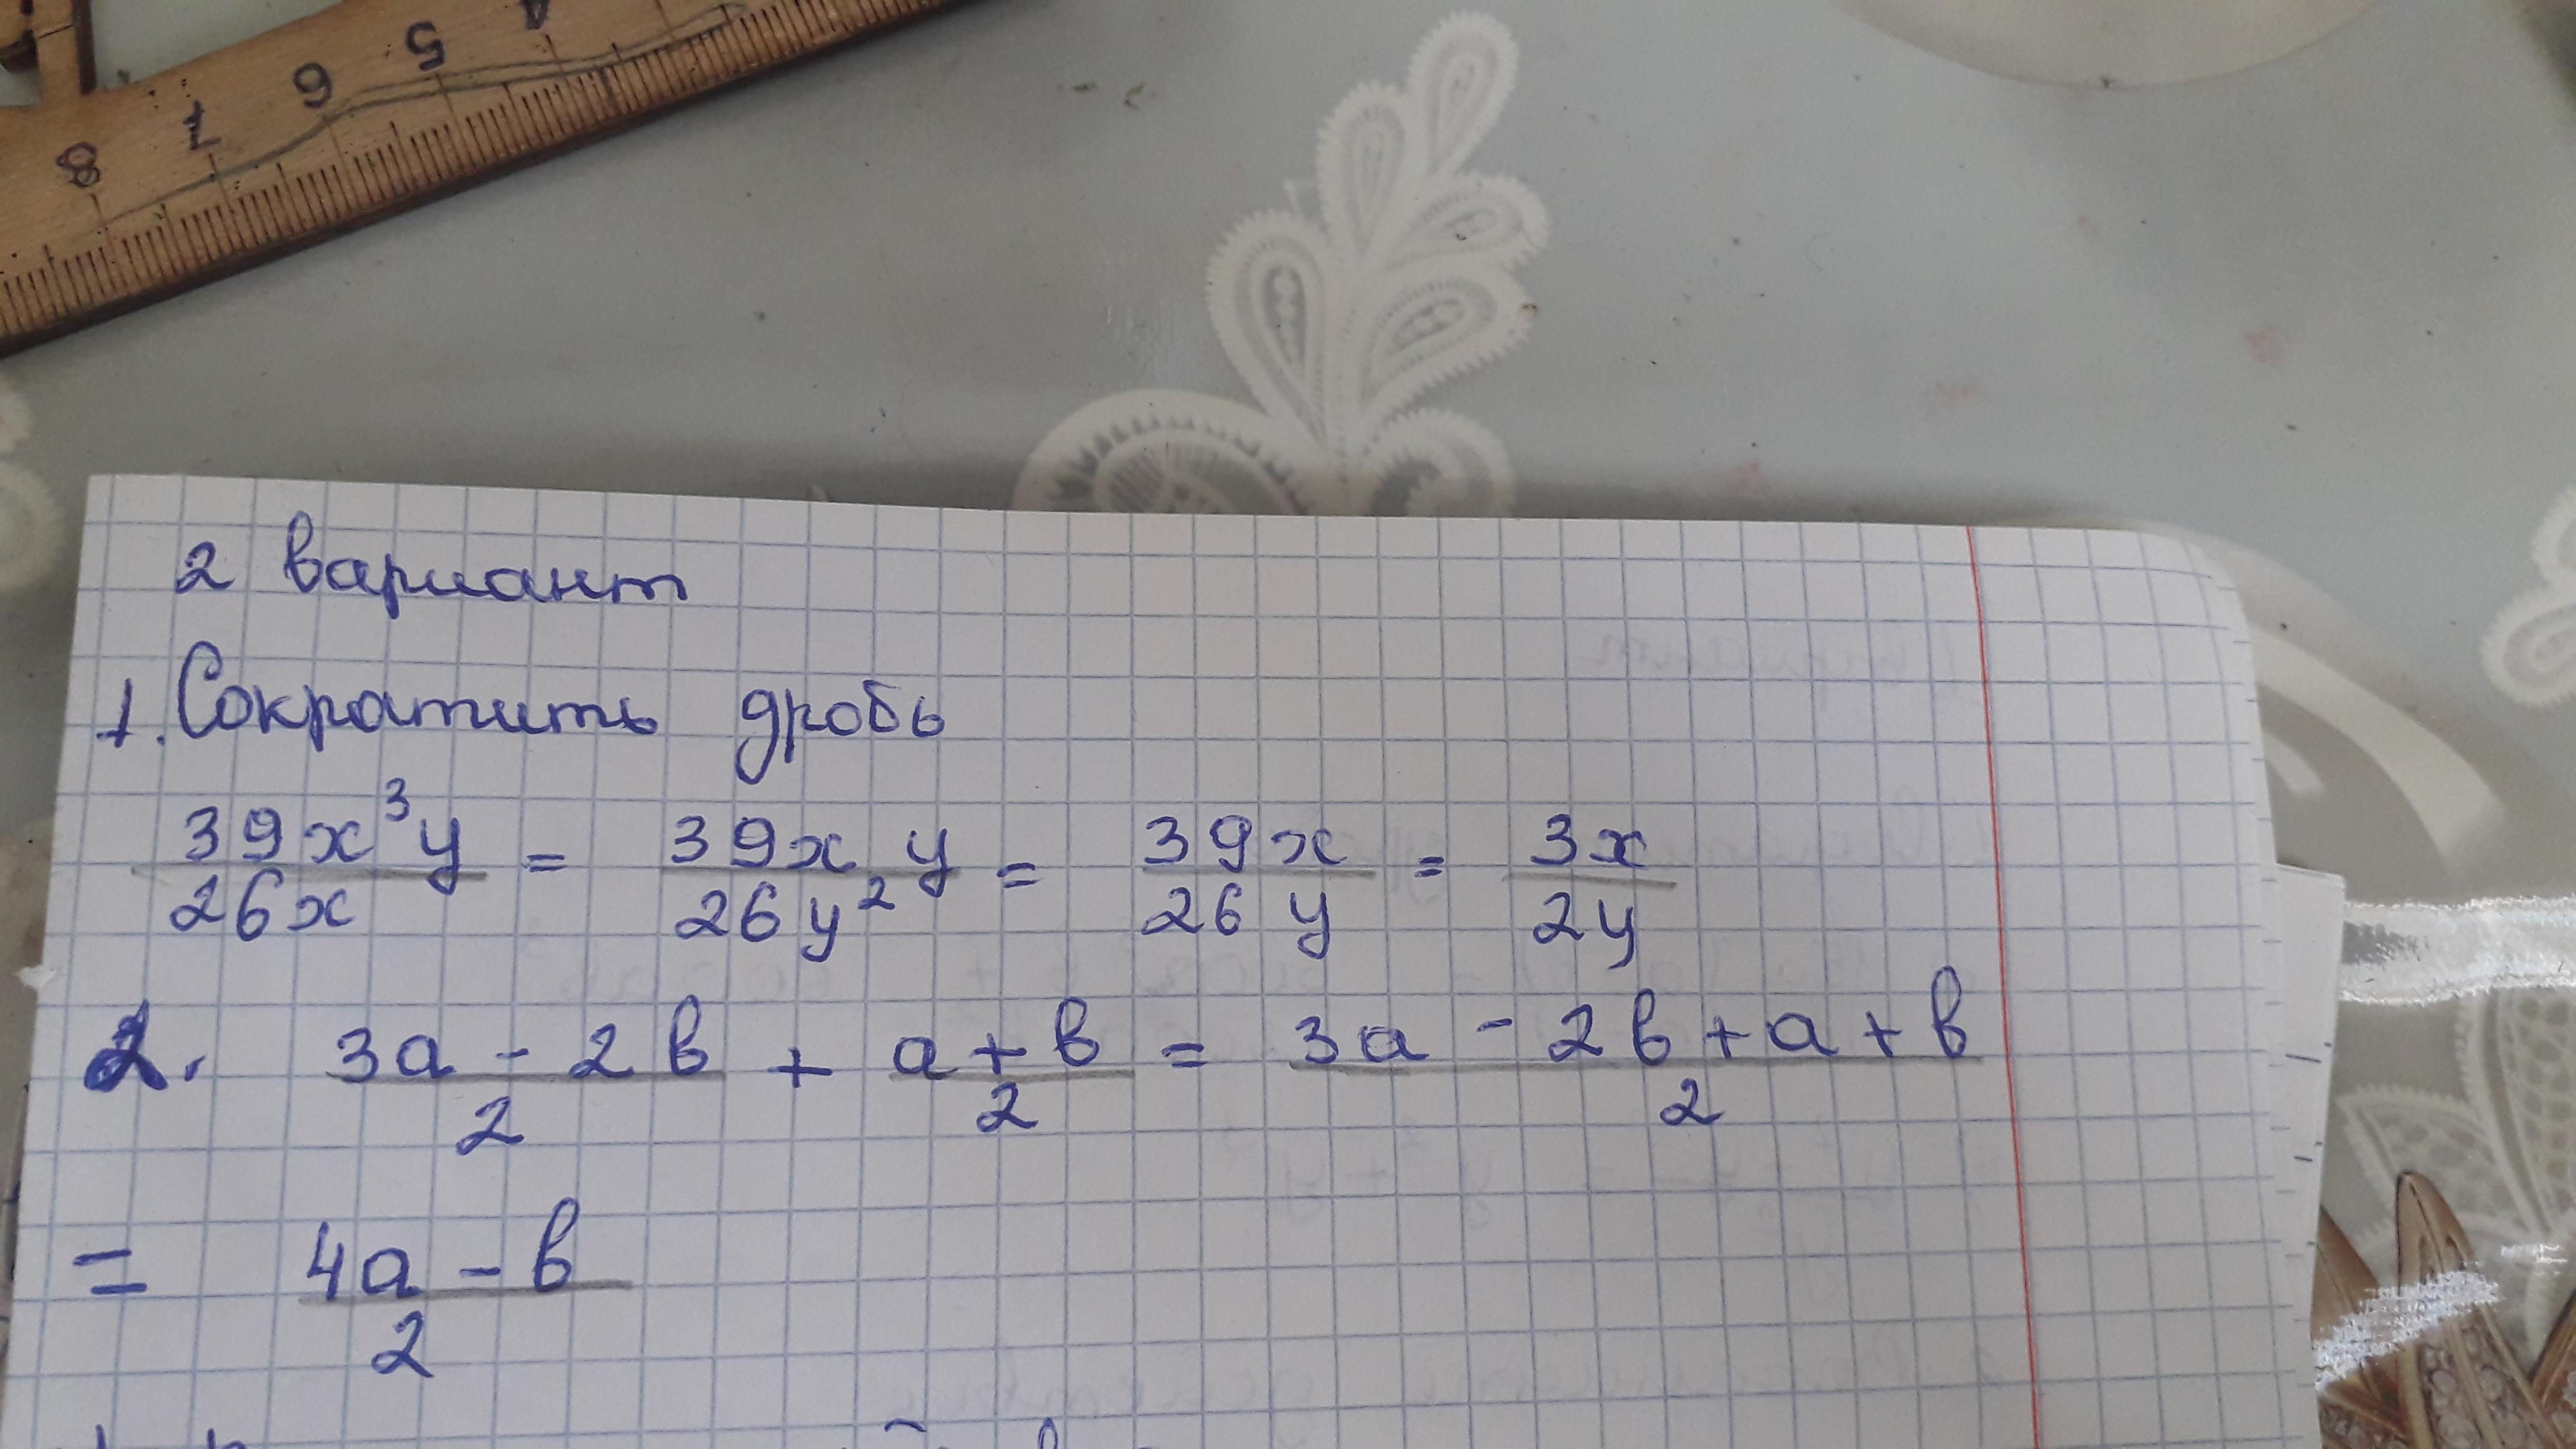 4
5
6
7
8
2 вариант
1. Сократить дробь
39x³y/26x = 39xy/26y² = 39x/26y = 3x/2y
2. 3a - 2b/2 + a + b/2 = 3a - 2b + a + b/2
= 4a - b/2